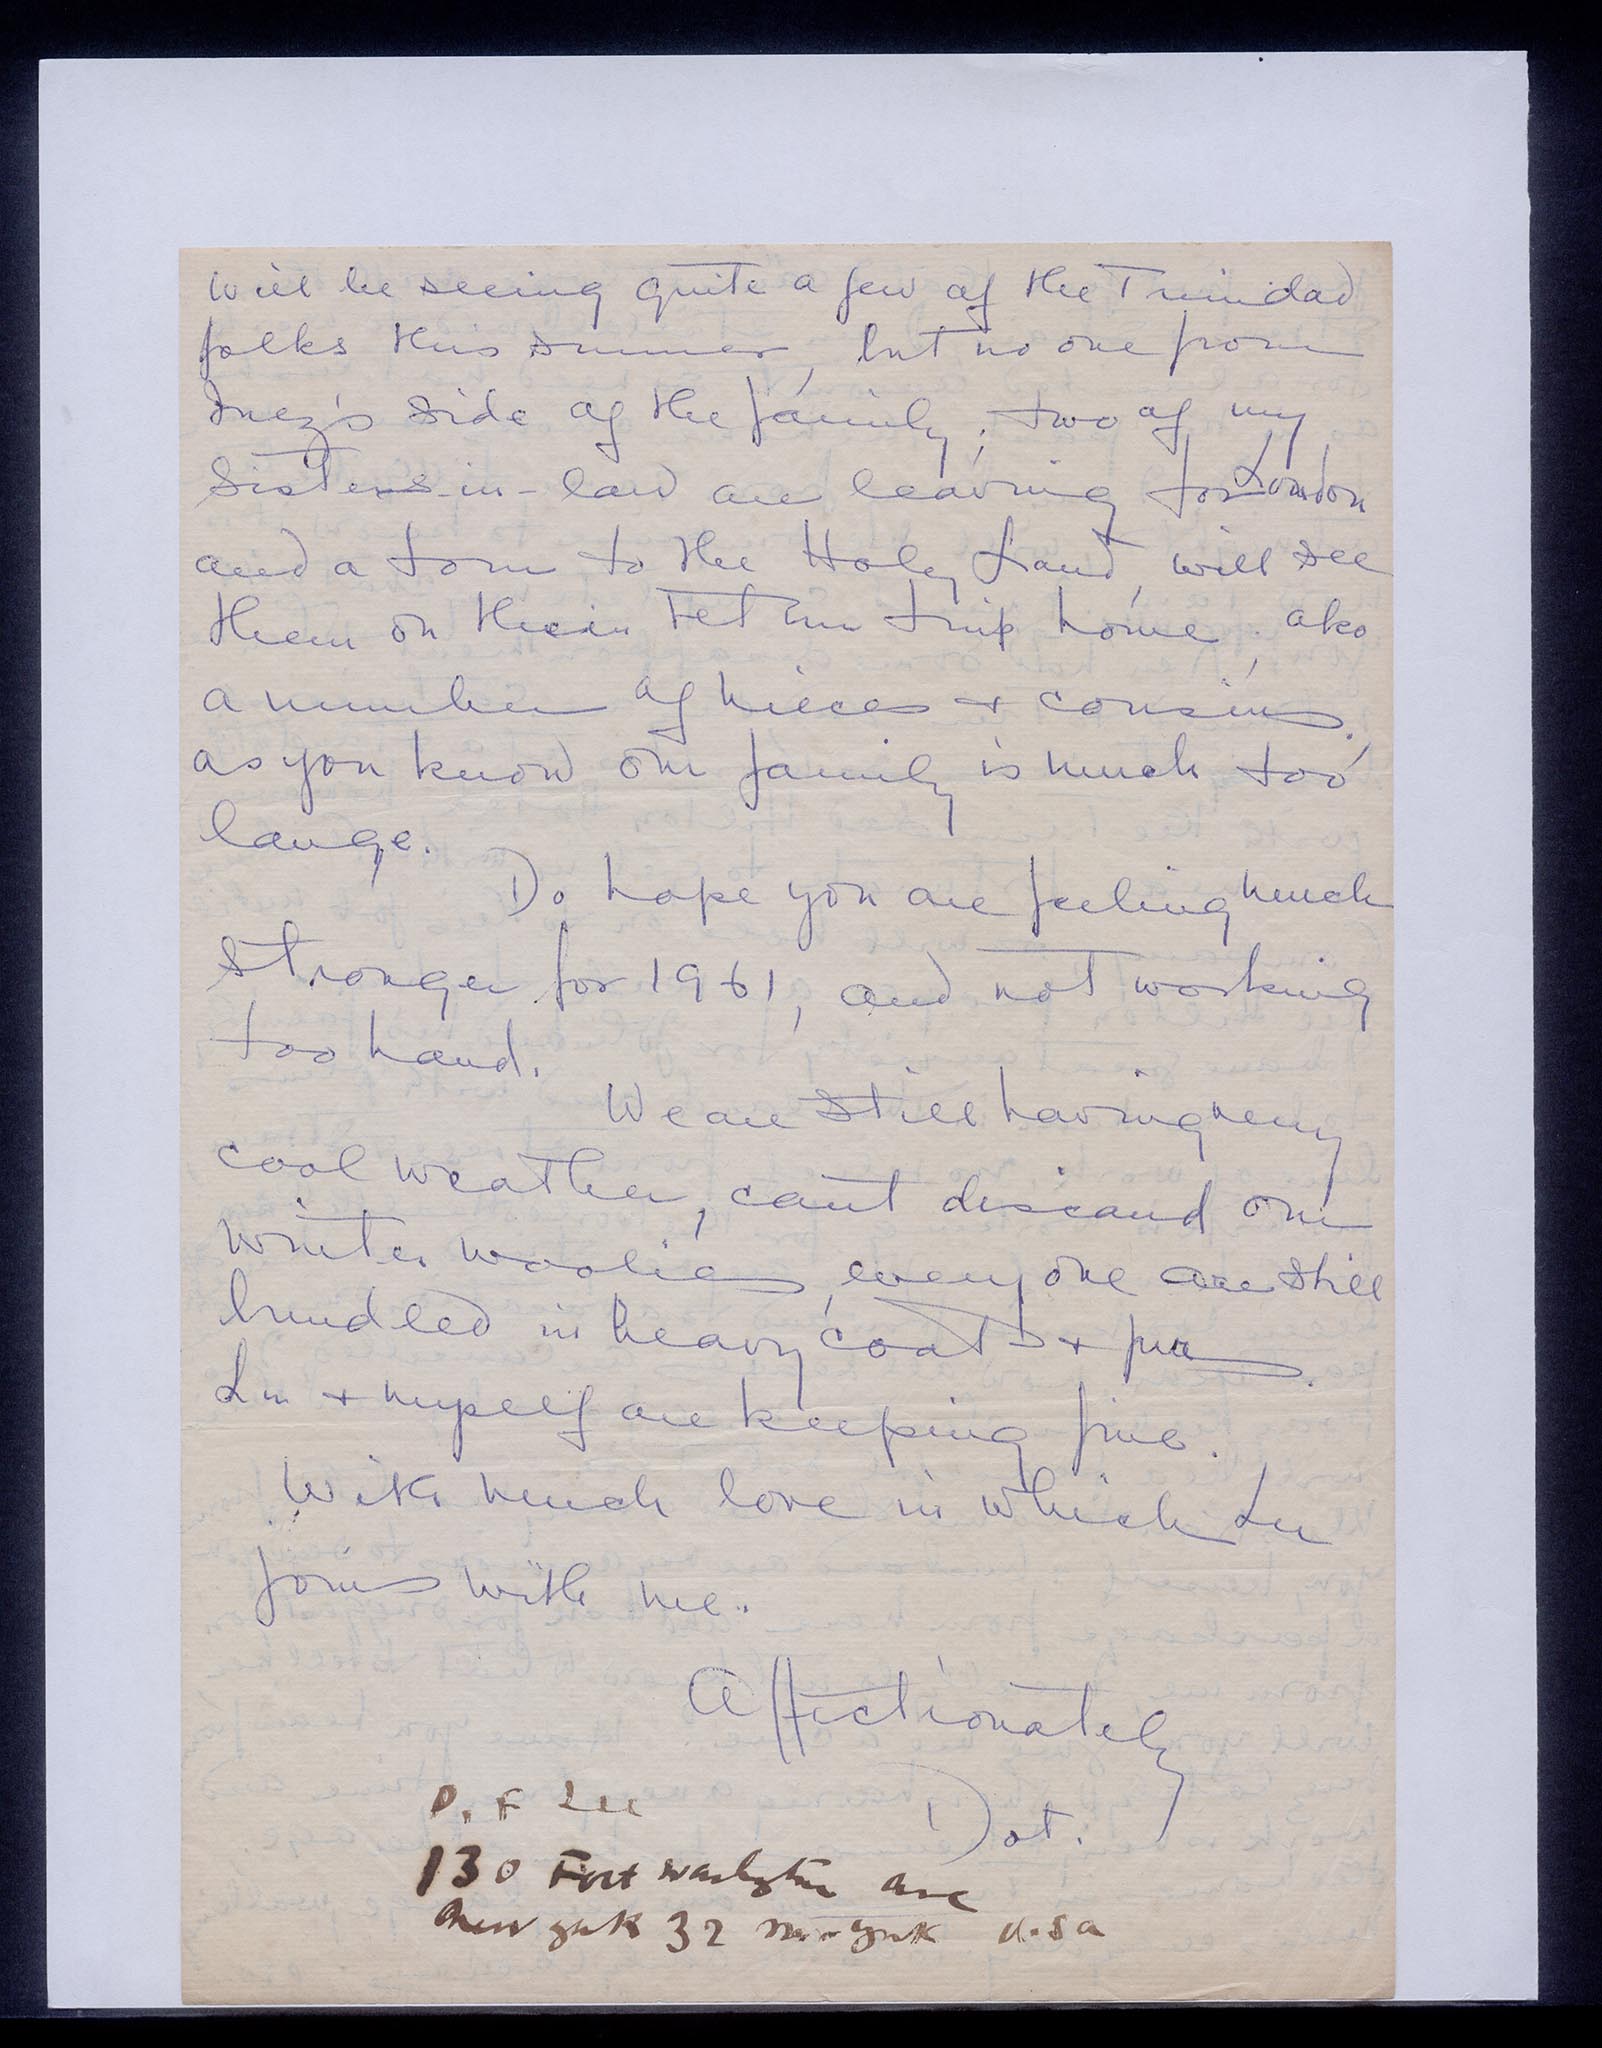 Will be seeing quite a few of the Trinidad
folks this summer, but no one from
Inez's side of the family; two of my
sisters-in-law are leaving for London
and a tour to the Holy Land, will see
them on their return trip home, also
a number of nieces + cousins,
as you know our family is much too
large.
Do hope you are feeling much
stronger for 1961, and not working
too hard.
We are still having very
cool weather, can't discard our
winter woolies, every one are still
bundled in heavy coats + furs.
Lu + myself are keeping fine.
With much love in which Lu
joins with me.
Affectionately
Dot.
D. F Lee
130 Fort Washington Ave
New York 32 New York U.S.A